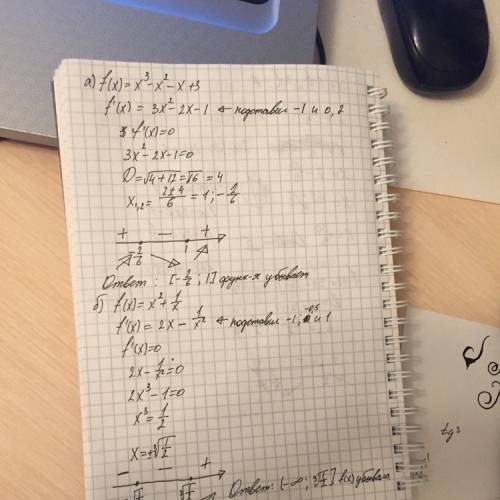 а) f(x) = x³ - x² - x + 3
f'(x) = 3x² - 2x - 1 ← подставил -1 и 0, 2
f'(x) = 0
3x² - 2x - 1 = 0
D = √4 + 12 = √16 = 4
x₁,₂ = (2 ± 4)/6 = 1; -2/6
+ − +
-2/6 1
Ответ: [-2/6; 1] функ-я убывает
б) f(x) = x² + 1/x
f'(x) = 2x - 1/x² ← подставил -1, -0,5 и 1
f'(x) = 0
2x - 1/x² = 0
2x³ - 1 = 0
x³ = 1/2
x = ±∛(1/2)
− − +
Ответ: (-∞; ∛(1/2)] f(x) убывала
tg 3